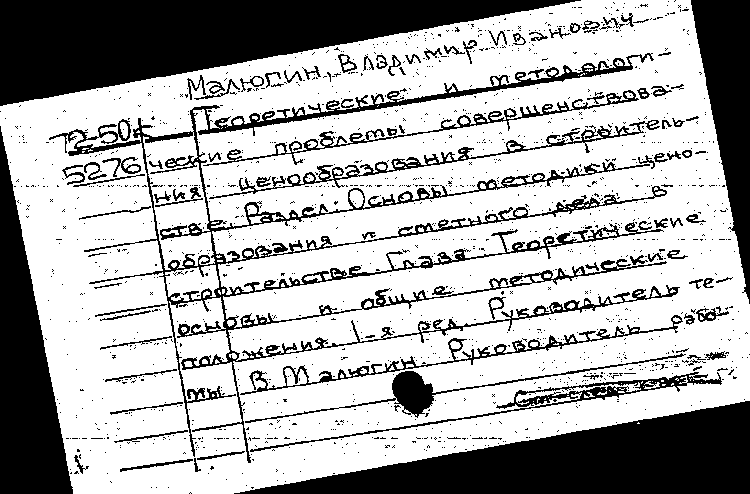 Малюгин, Владимир Иванович
72-50к Теоретические и методологи-
5276 ческие проблемы совершенствова-
ния ценообразования в строитель-
стве. Раздел: Основы методики цено-
образования и сметного дела в
строительстве. Глава: Теоретические
основы и общие методические
положения. 1-я ред. Руководитель те-
мы В. Малюгин. Руководитель рабо-
См. след. к